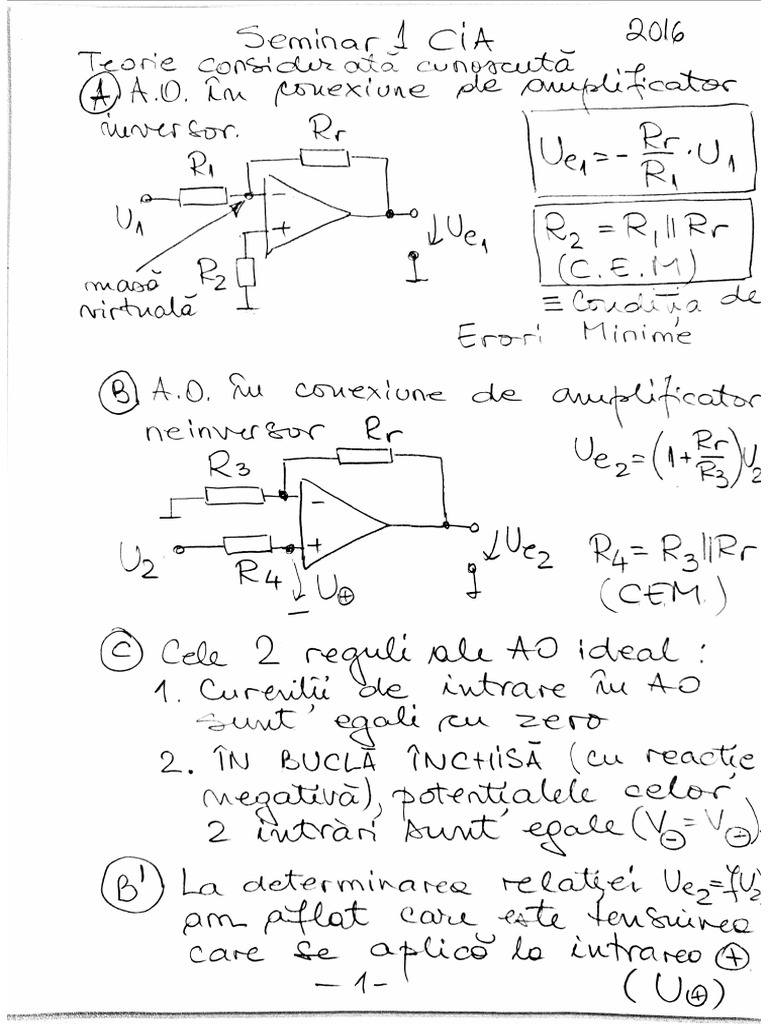 Seminar 1 CiA 2016
Teorie considerată cunoscută
Ⓐ A.O. în conexiune de amplificator
inversor.
Rr
R1
U1
−
+
R2
↓Ue1
masă
virtuală
Ue1 = − Rr/R1 · U1
R2 = R1 || Rr
(C.E.M)
≡ Condiția de
Erori Minime
Ⓑ A.O. în conexiune de amplificator
neinversor
Rr
R3
−
+
U2
R4
U⊕
↓Ue2
Ue2 = (1 + Rr/R3) U2
R4 = R3 || Rr
(CEM)
Ⓒ Cele 2 reguli ale AO ideal :
1. Curenții de intrare în AO
sunt egali cu zero
2. ÎN BUCLĂ ÎNCHISĂ (cu reacție
negativă), potențialele celor
2 intrări sunt egale (V⊖ = V⊖).
B' La determinarea relației Ue2 = f(U2)
am aflat care este tensiunea
care se aplică la intrarea ⊕
(U⊕)
— 1 -